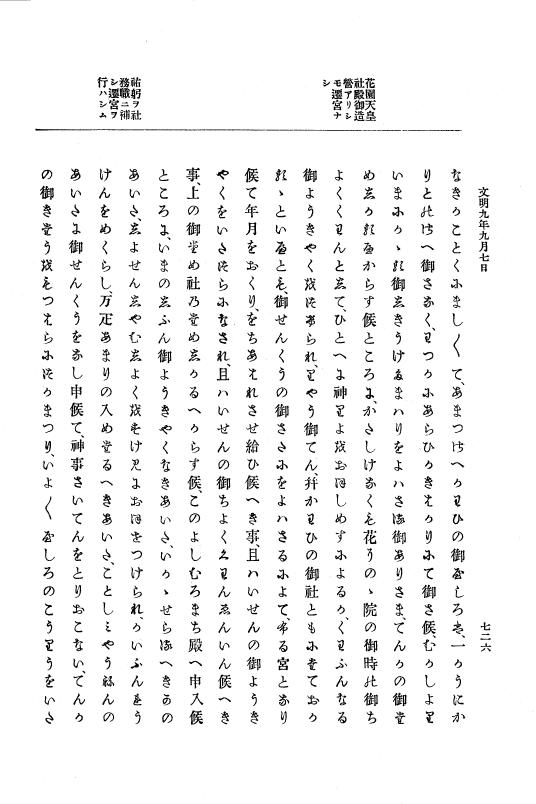 花園天皇
社殿御造
營アリシ
モ遷宮ナ
シ
祐躬ヲ社
務職ニ補
シ遷宮ヲ
行ハシム
文明九年九月七日
七二六
なきかことくにまし〱て、あまつさへかりひの御やしろも、一かうにか
りとのさへ御さなく、わつかにあらひかきはかりにて御さ候、むかしより
いまにかゝる御しきうけ給まハりをよハさる御ありさま、てんかの御た
めしかるへからす候ところに、かたしけなくも花その
ゝ院の御時は御ち
よくくわんとして、ひとへに神りよをおほしめすによるか、くわふんなる
御ようきやくをあてられ、りやう御てん、幷かりひの御社ともにたておか
るゝといへとも、御せんくうの御さたにをよハさるによて、ふる宮となり
候て年月をおくり、をちあれさせ給ひ候へき事、且ハいせんの御ようき
やくをいたつらになされ、且ハいせんの御ちよくくわんゑんいん候へき
事、上の御ため社乃ためしかるへからす候、このよしむろまち殿へ申入候
ところに、いまのしふん御ようきやくなきあいた、いかゝせらるへきよの
あいた、しよせんしやむしよくをすけみにおほせつけられ、かいふんをう
けんをめくらし、万疋あまりの入めたるへきあいた、ことしミやうねんの
あいたに御せんくうをなし申候て、神事さいてんをとりおこない、てんか
の御きたうをもつはらにつかまつり、いよ〱やしろのこうりうをいた